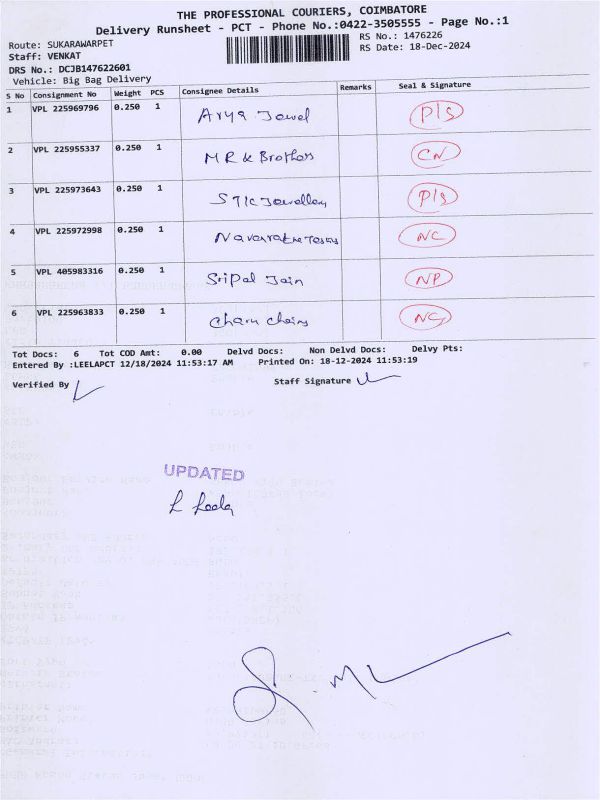 THE PROFESSIONAL COURIERS, COIMBATORE
Delivery Runsheet - PCT - Phone No.:0422-3505555 - Page No.:1
Route: SUKARAWARPET RS No.: 1476226
Staff: VENKAT RS Date: 18-Dec-2024
DRS No.: DCJB147622601
Vehicle: Big Bag Delivery
S No Consignment No Weight PCS Consignee Details Remarks Seal & Signature
1 VPL 225969796 0.250 1 Arya Jewel P/S
2 VPL 225955337 0.250 1 MR & Brothers CN
3 VPL 225973643 0.250 1 Jewellery P/S
4 VPL 225972998 0.250 1 NC
5 VPL 405983316 0.250 1 Sripal Jain NP
6 VPL 225963833 0.250 1 Charu Chains
Tot Docs: 6 Tot COD Amt: 0.00 Delvd Docs: Non Delvd Docs: Delvy Pts:
Entered By :LEELAPCT 12/18/2024 11:53:17 AM Printed On: 18-12-2024 11:53:19
Verified By Staff Signature
UPDATED
L Leela